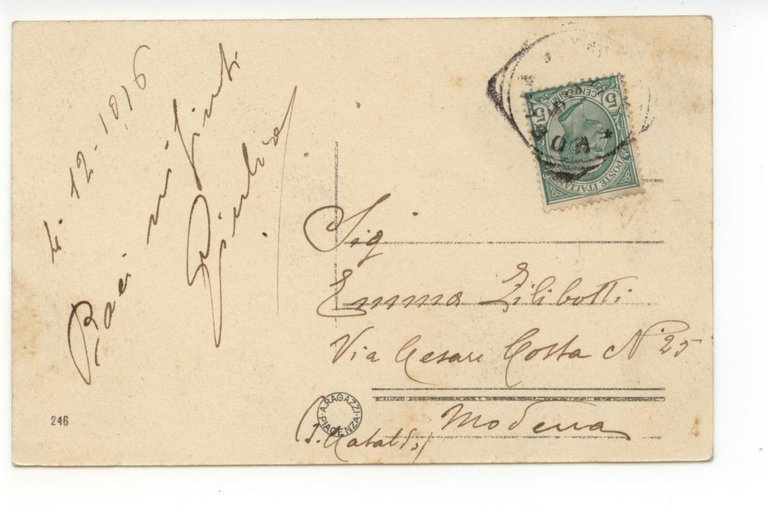 li 12-1916
Baci infiniti
Sig
Emma Zilibotti
Via Cesare Costa N° 25
Modena
(S. Cataldo)
246
A. RAGAZZI · PIACENZA
5 CENTESIMI 5
POSTE ITALIANE